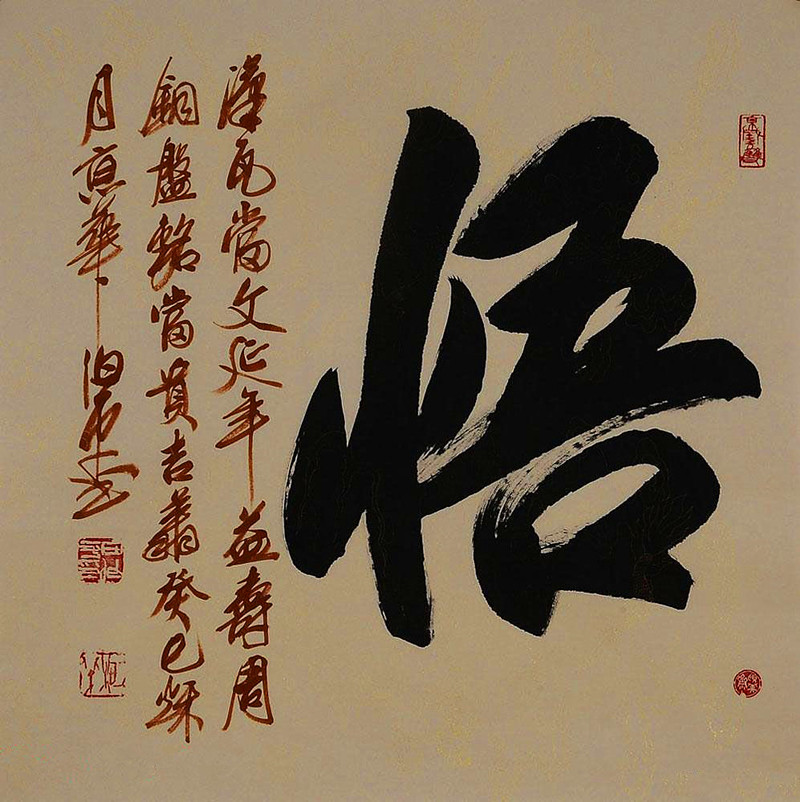 悟
漢瓦當文延年益壽周
銅盤銘富貴吉癸巳秋
月京華石書